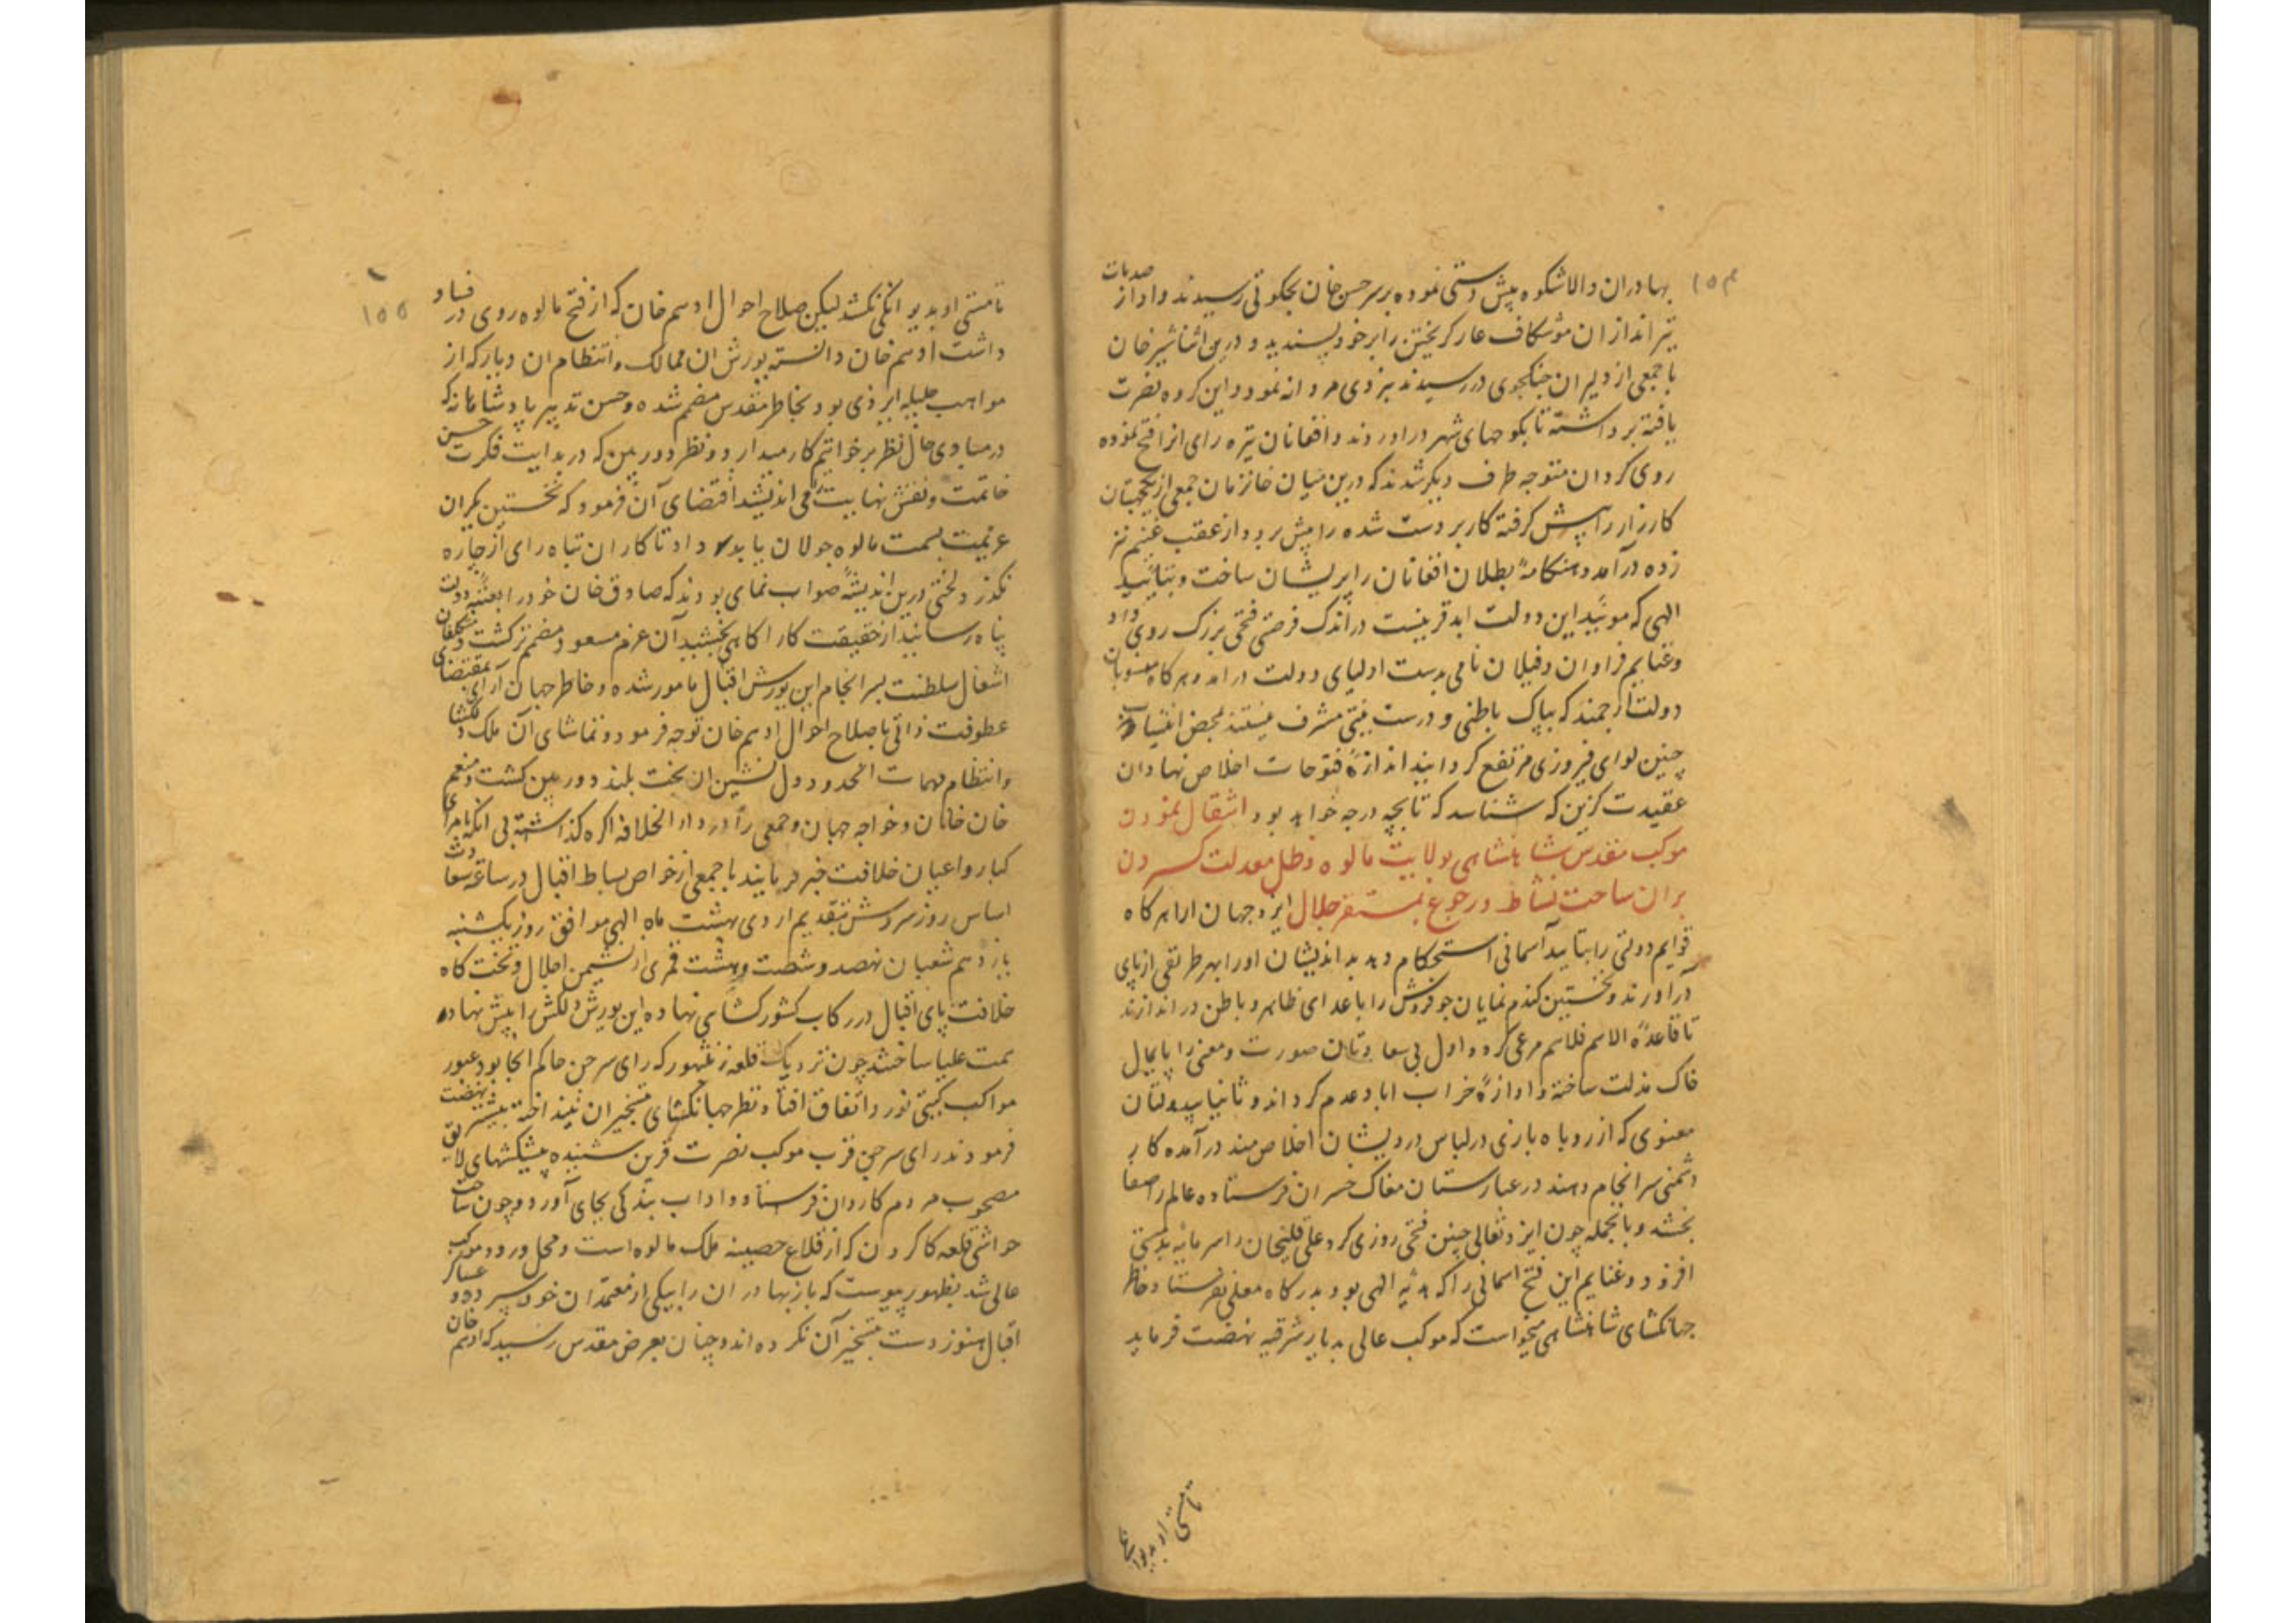 ۱۵۴
بهادران والاشکوه پیش دستی نموده بر سر حسن خان بچکوتی رسیدند و از صدمات
تیر اندازان موشکاف عار کریختن را بر خود پسندید و درین اثنا شیر خان
با جمعی از دلیران جنکجوی در رسیدند نبردی مردانه نمود و این کروه نصرت
یافته برداشته تا بکوچهای شهر در اوردند و افغانان تیره رای انرا فتح نموده
روی کردان متوجه طرف دیکر شدند که درین میان خانزمان جمعی از یکجهتان
کارزار را پیش کرفته کار بر دست شده را پیش برد و از عقب غنیم تیز
زده درآمد و هنکامهٔ بطلان افغانان را پریشان ساخت و بتایید
الهی که موید این دولت ابد قرینست در اندک فرصتی فتحی بزرک روی داد
و غنایم فراوان و فیلان نامی بدست اولیای دولت در امد و هر کاه منسوبان
دولت ارجمند که بپاک باطنی و درست نیتی مشرف نیستند بمحض انتساب
چنین لوای فیروزی مرتفع کردانیند اندازهٔ فتوحات اخلاص نهادان
عقیدت کزین که شناسد که تا بچه درجه خواهد بود انتقال نمودن
موکب مقدس شاهنشاهی بولایت مالوه و ظل معدلت کستردن
بران ساحت نشاط و رجوع بمستقر جلال ایزد جهان ارا هر کاه
قوایم دولتی را بتایید آسمانی استحکام دهد بد اندیشان اورا بهر طریقی از پای
درآورند و نخستین کندم نمایان جو فروش را با عدای ظاهر و باطن در اندازند
تا قاعدهٔ الاهم فالاهم مرعی کرد و اول بی سعادتان صورت و معنی را پایمال
خاک مذلت ساخته و اوازهٔ خراب اباد عدم کرداند و ثانیا بیدولتان
معنوی که از روباه بازی در لباس درویشان اخلاص مند درآمده کار
دشمنی سرانجام دهند در غبارستان مغاک خسران فرستاده عالم را صفا
بخشد و بالجمله چون ایزد تعالی چنین فتحی روزی کرد علی قلیخان را سرمایه بدمستی
افزود و غنایم این فتح اسمانی را که هدیه الهی بود بدرکاه معلی نفرستاد و خاطر
جهانکشای شاهنشاهی میخواست که موکب عالی بدیار شرقیه نهضت فرماید
تا مستی او بدیوانکی
۱۵۵
تا مستی او بدیوانکی نکشد لیکن صلاح احوال ادهم خان که از فتح مالوه روی در فساد
داشت ادهم خان دانسته یورش ان ممالک و انتظام ان دیار که از
مواهب جلیله ایزدی بود بخاطر مقدس مصمم شده و حسن تدبیر پادشاهانه که
در مبادی حال نظر بر خواتیم کار میدارد و نظر دوربین که در بدایت فکرت حسن
خاتمت و نقش نهایت می اندیشد اقتضای آن فرمود که نخستین یکران
عزیمت بسمت مالوه جولان باید داد تا کار ان تباه رای از چاره
نکذرد و لختی درین اندیشهٔ صواب نمای بودند که صادق خان خود را بعتبه دولت
پناه رسانید از حقیقت کار اکاهی بخشید آن عزم مسعود مصمم تر کشت و متکفلان
اشغال سلطنت بسرانجام این یورش اقبال مامور شده و خاطر جهان آرای بمقتضای
عطوفت ذاتی باصلاح احوال ادهم خان توجه فرمود و تماشای آن ملک دلکشا
و انتظام مهمات انحدود دل نشین ان بخت بلند دوربین کشت و منعم
خان خانان و خواجه جهان و جمعی را در دار الخلافه اکره کذاشته بی انکه بامرای
کبار و اعیان خلافت خبر فرمایند با جمعی از خواص بساط اقبال در ساعت سعادت
اساس روز سروش بتقدیم اردی بهشت ماه الهی موافق روز یکشنبه
یازدهم شعبان نهصد و شصت و هشت قمری از نشیمن اجلال و تخت کاه
خلافت پای اقبال در رکاب کشورکشای نهاده این یورش دلکش را پیش نهاد
همت علیا ساختند چون نزدیک قلعه رنتهور که رای سرجن حاکم انجا بود عبور
مواکب کیتی نورد اتفاق افتاد و نظر جهانکشای بتسخیر ان نینداخته پیشتر نهضت
فرمودند رای سرجن قرب موکب نصرت قرین شنیده پیشکشهای لایق
مصحوب مردم کاردان فرستاد و اداب بندکی بجای آورد و چون ساحت
حواشی قلعه کاکرون که از قلاع حصینه ملک مالوه است و محل ورود موکب
عالی شد بظهور پیوست که باز بهادر ان را بیکی از معتمدان خود سپرده و عساکر
اقبال هنوز دست بتسخیر آن نکرده اند و چنان بعرض مقدس رسید که ادهم خان